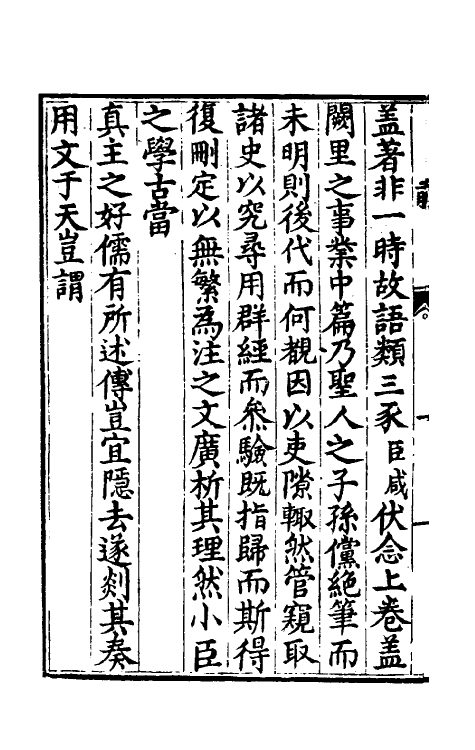 盖著非一時故語類三豕臣咸伏念上卷盖
闕里之事業中篇乃聖人之子孫儻絶筆而
未明則後代而何覩因以吏隙輙然管窺取
諸史以究尋用群經而叅驗既指歸而斯得
復刪定以無繁為注之文廣析其理然小臣
之學古當
真主之好儒有所述傳豈宜隱去遂剡其奏
用文于天豈謂